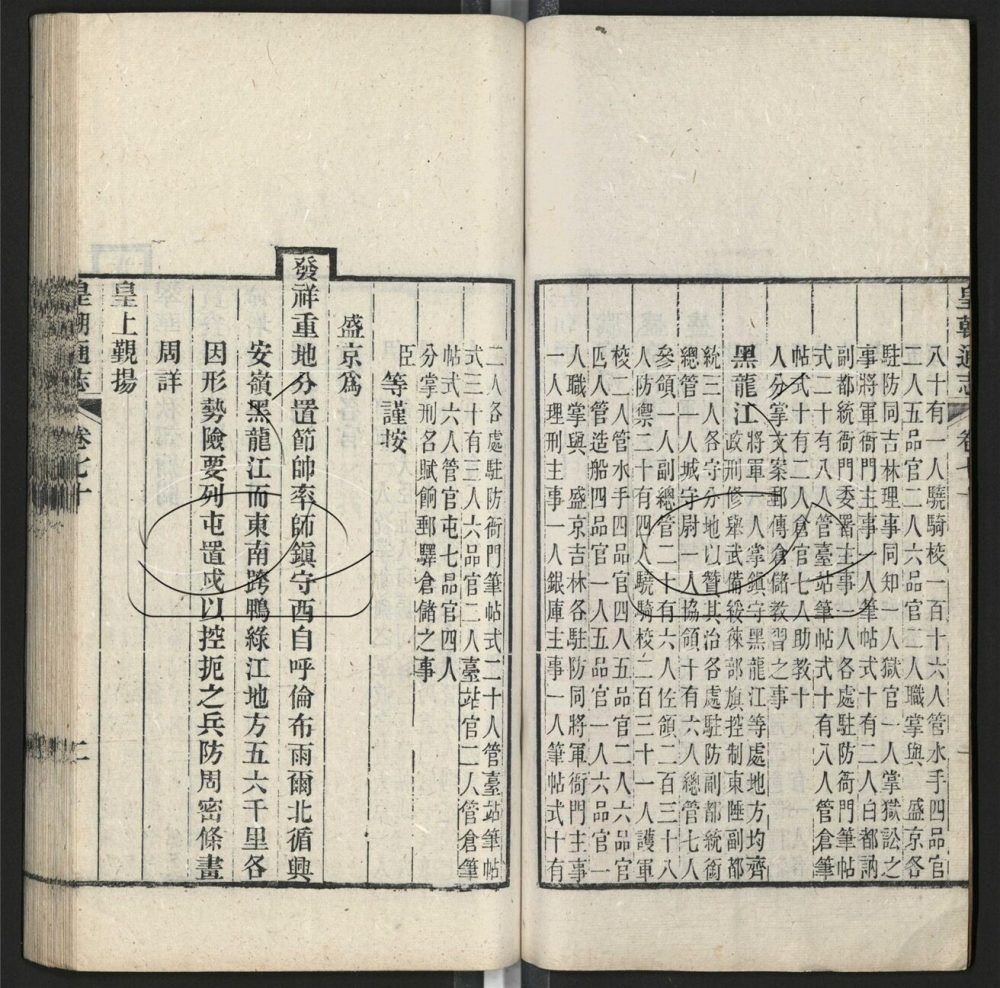 皇朝通志 卷七十 一
八十有一人驍騎校一百十六人管水手四品官
二人五品官二人六品官二人職掌與　盛京各
駐防同吉林理事同知一人獄官一人掌獄訟之
事將軍衙門主事一人筆帖式十有二人白都訥
副都統衙門委署主事一人各處駐防衙門筆帖
式二十有八人管臺站筆帖式十有八人管倉筆
帖式十有二人倉官七人助教十
人分掌文案郵傳倉儲教習之事
黑龍江
將軍一人掌鎮守黑龍江等處地方均齊
政刑修舉武備綏徠部旗控制東陲副都
統三人各守分地以贊其治各處駐防副都統銜
總管一人城守尉一人協領十有六人總管七人
參領一人副總管二十有六人佐領二百三十八
人防禦二十有四人驍騎校二百三十一人護軍
校二人管水手四品官四人五品官二人六品官
四人管造船四品官一人五品官一人六品官一
人職掌與　盛京吉林各駐防同將軍衙門主事
一人理刑主事一人銀庫主事一人筆帖式十有
二人各處駐防衙門筆帖式二十人管臺站筆帖
式三十有三人六品官二人臺站官二人管倉筆
帖式六人管官屯七品官四人
分掌刑名賦餉郵驛倉儲之事
臣等謹按
盛京爲
發祥重地分置節帥率師鎮守西自呼倫布雨爾北循興
安嶺黑龍江而東南跨鴨綠江地方五六千里各
因形勢險要列屯置戍以控扼之兵防周密條畫
周詳
皇上覲揚
皇朝通志 卷七十 二